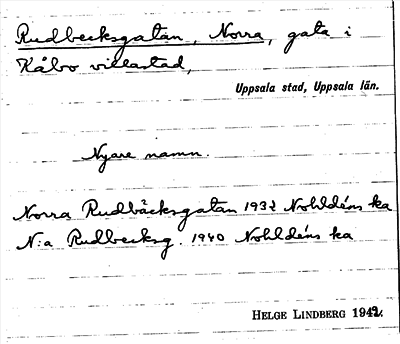 Rudbecksgatan, Norra, gata i
Kåbo villastad,
Uppsala stad, Uppsala län.
Nyare namn.
Norra Rudbäcksgatan 1932 Nohldéns ka
N:a Rudbecksg. 1940 Nohldéns ka
HELGE LINDBERG 1942.